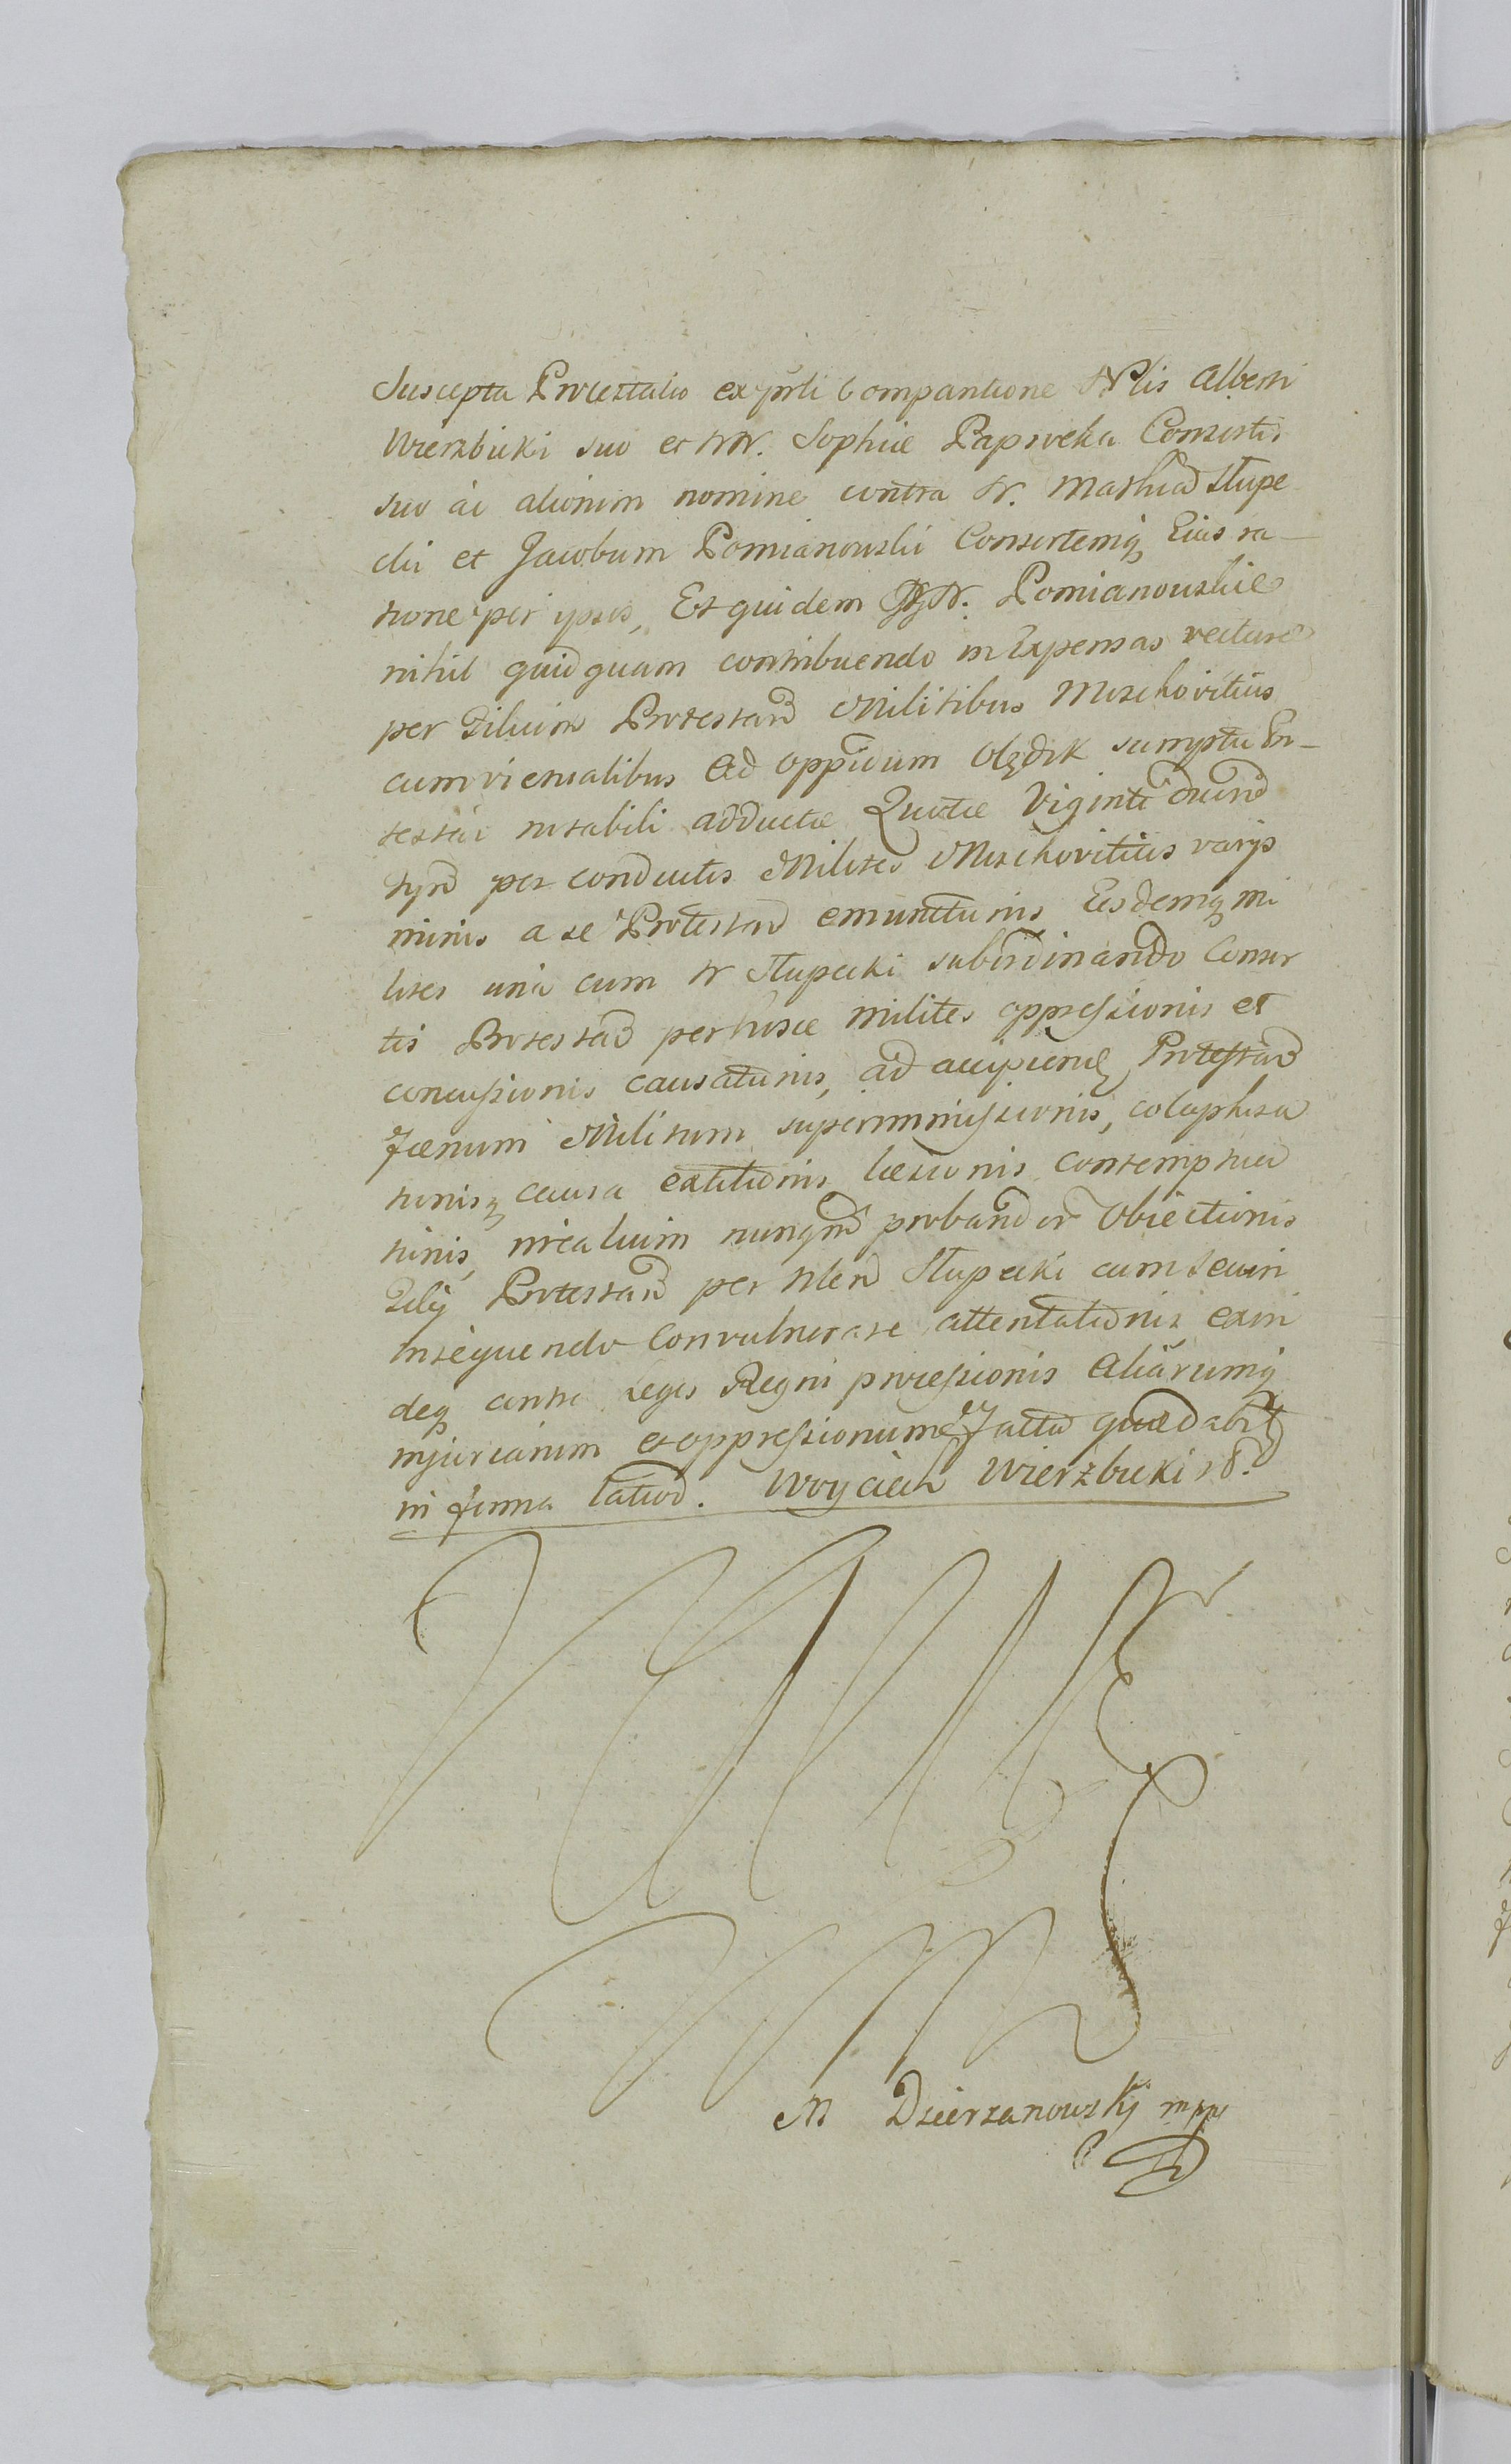 Suscepta Protestatio ex prti Comparitione Nlis Alberti
Wierzbicki suo et NN. Sophiæ Paprocka Consortis
suo ac aliorum nomine contra N. Mathiā Słupe
cki et Jacobum Pomianowski Consortemq Eius ra—
tione per ipsos, Et quidem NN. Pomianowskie
nihil quidquam contribuendo in Expensas vecturæ
per Filium Protestan Militibus Moschoviticis
cum victualibus Ad oppidum sumptu Pro—
testan notabili adductæ Quotæ Viginti
tynf per conductos Milites Moschoviticos varijs
minis a se Protestan emunctionis Eosdemq mi
lites una cum N Słupecki subordinando Consor
tis Protestan per hosce milites oppressionis et
concussionis causationis, ad accipiend Protestan
fœnum Militum superimmissionis, colaphisa
tionisq causa extitionis læsionis contemptua
tionis, nrealium nunqm probandor Obiectionis
Filij Protestan per Nlen Słupecki cum securi
Insequendo Convulnerare attentationis exin
deq contra Leges Regni processionis Aliarumq
injuriarum et oppressionum facta
in forma latiori. Woyciech Wierzbicki
M Dzierzanowskj mppa